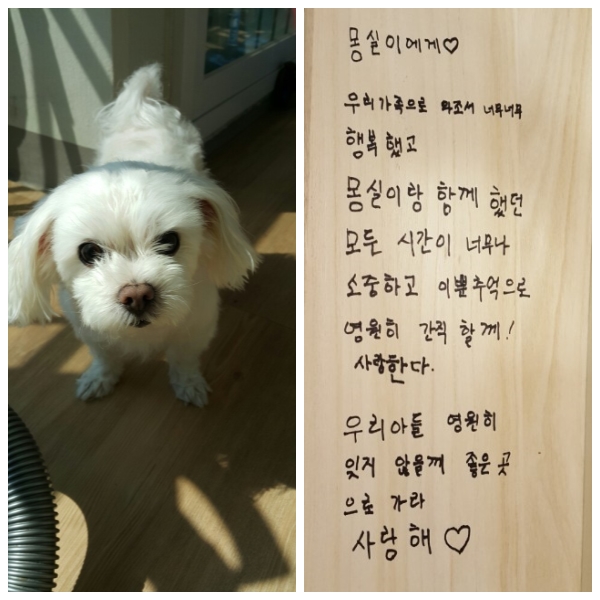 몽실이에게♡
우리가족으로 와조서 너무너무
행복했고
몽실이랑 함께 했던
모든 시간이 너무나
소중하고 이쁜추억으로
영원히 간직 할께!
사랑한다.
우리아들 영원히
잊지 않을께 좋은곳
으로 가라
사랑해♡